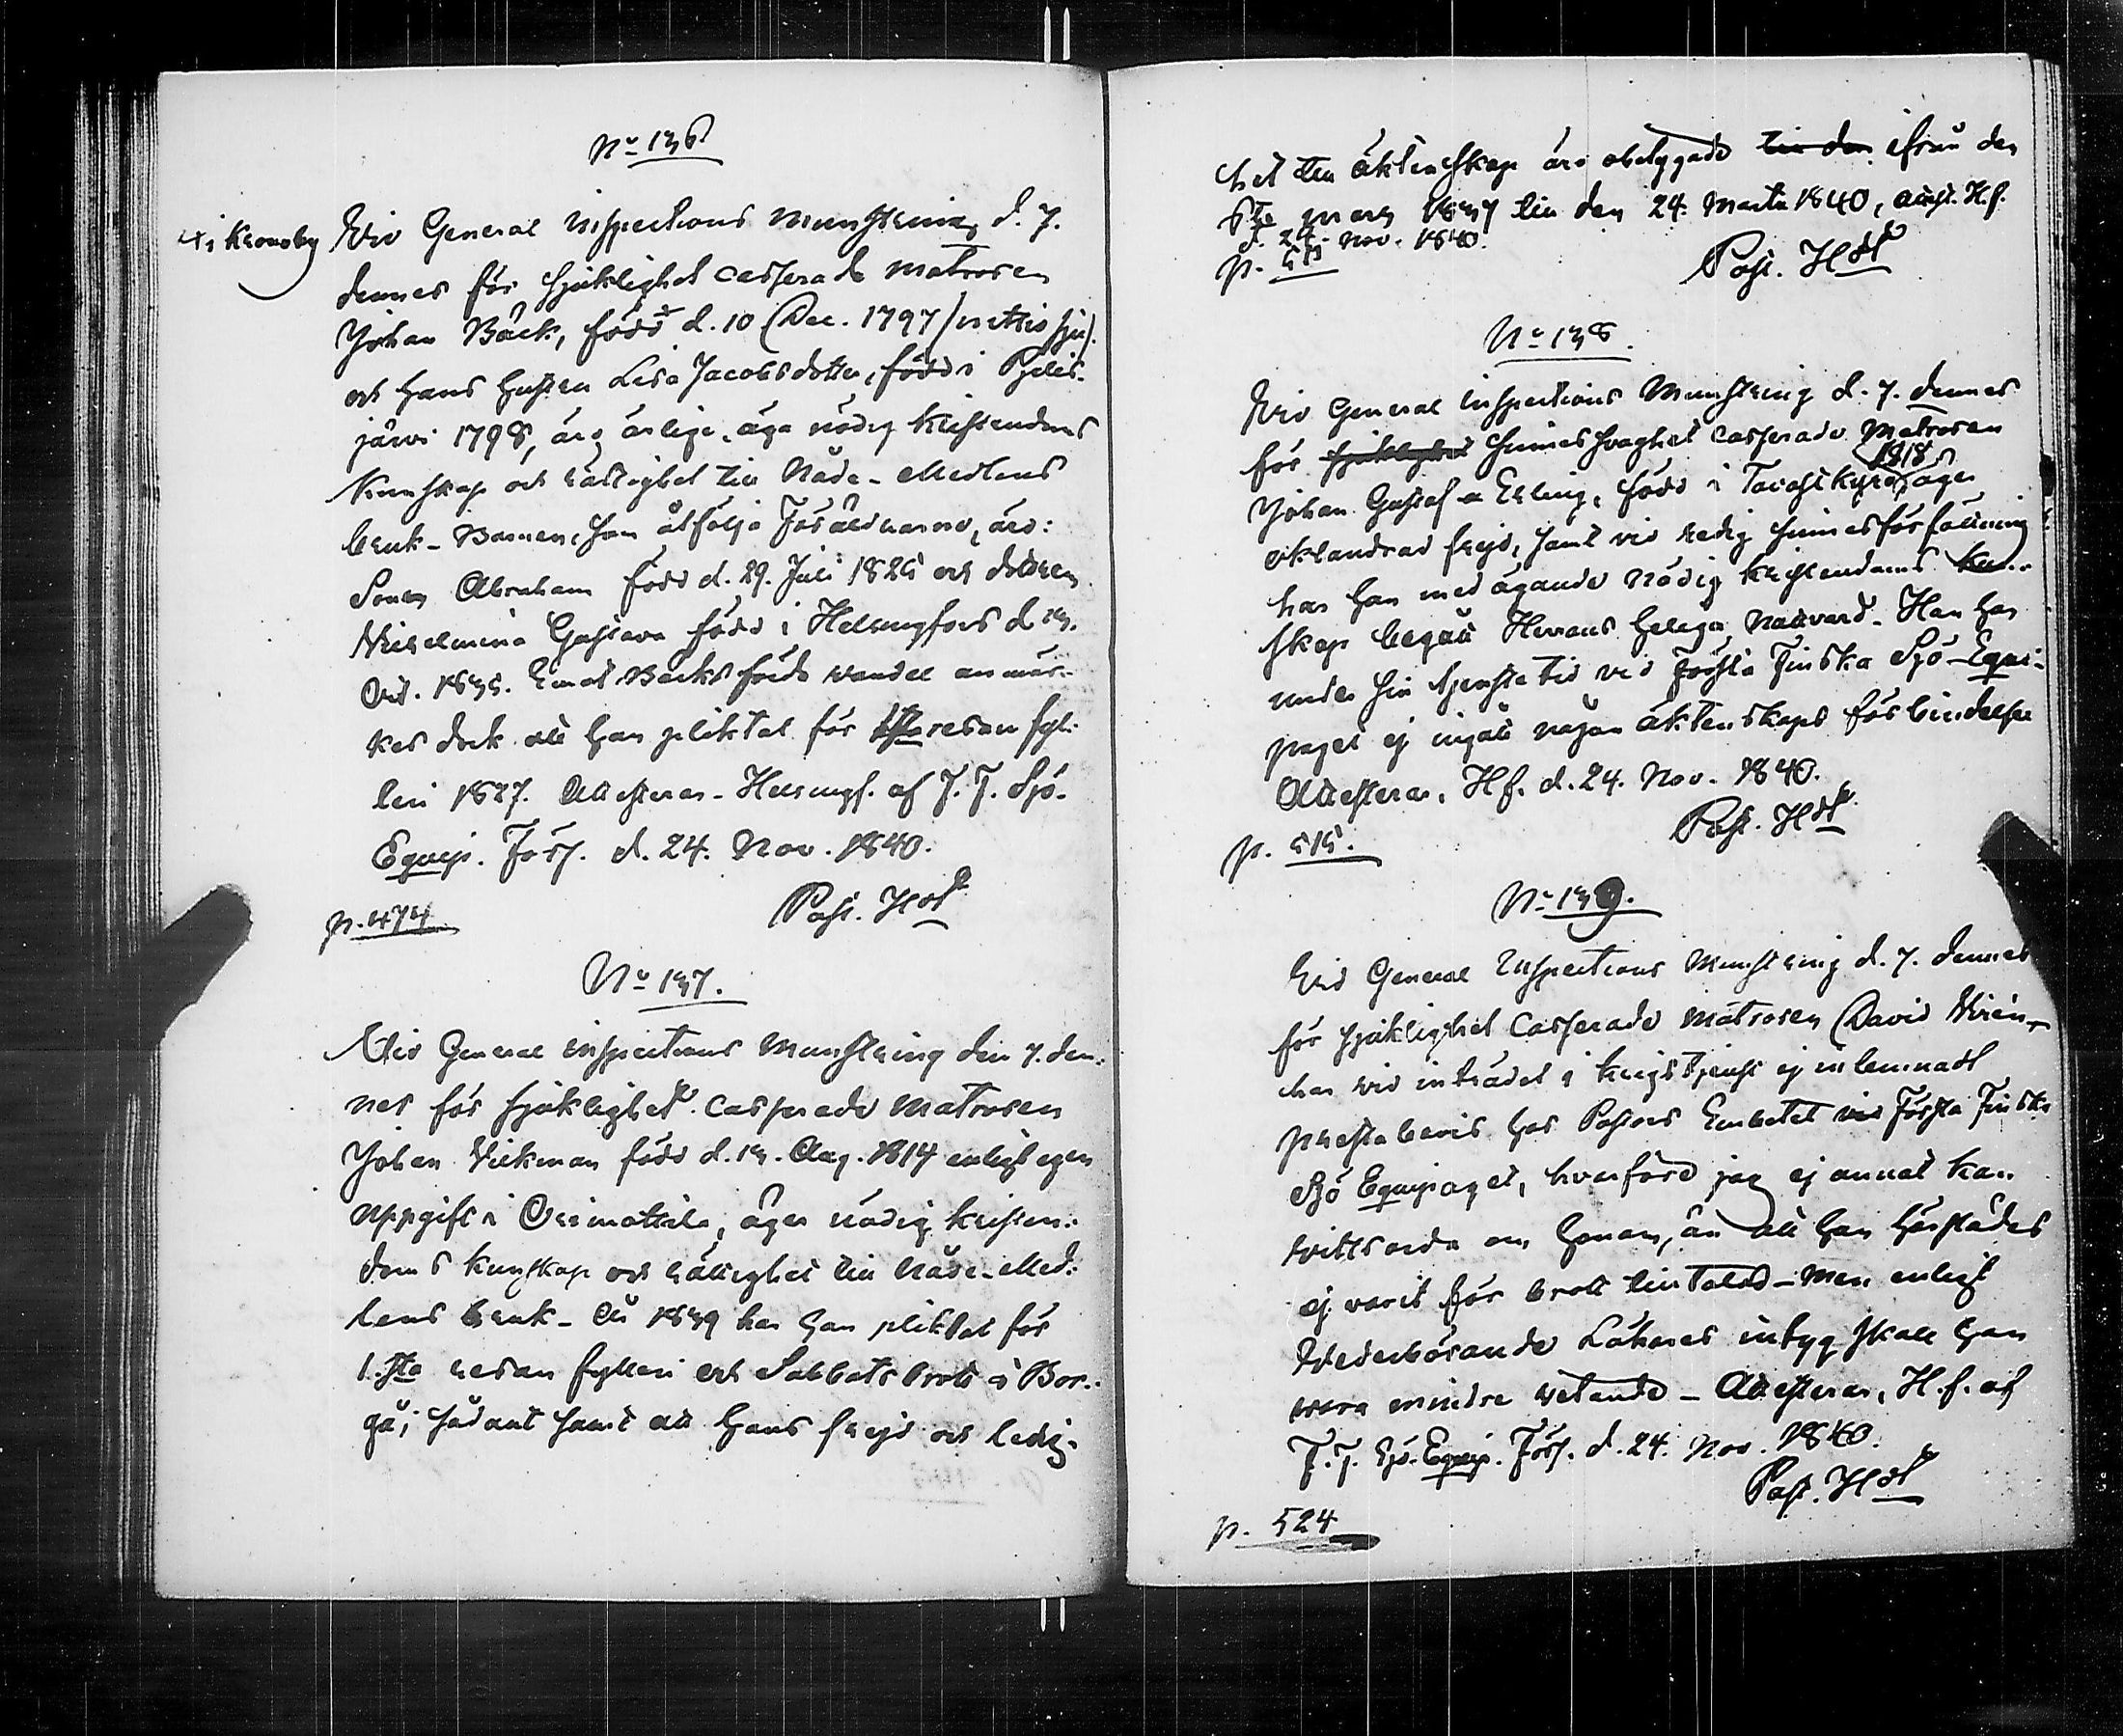 No 136.
+ i Kronoby
Wid General Inspections Munstring d. 7.
dennes för sjuklighet casserade Matrosen
Johan Bäck, född + d. 10 Dec. 1797 (nittio sju).
och hans hustru Lisa Jacobsdotter, född i Pyhä-
järvi 1798, äro ärlige, äga nödig Kristendoms
kunskap och rättighet till Nåde-Medlens
bruk - Barnen, som åtfölja Föräldrarne, äro:
Sonen Abraham född d. 29. Juli 1825 och dottren
Wilhelmina Gustava född i Helsingfors d. 13.
Oct. 1835. Emot Bäcks förda wandel anmär-
kes dock att han pliktat för 1sta resan fyl-
leri 1827. Attesteras - Helsingf. af F. F. Sjö-
Equip. Förs. d. 24. Nov. 1840.
Past. Hdt
p. 474
No 137.
Wid General Inspections Munstring den 7. den-
nes för sjuklighet casserade Matrosen
Johan Wickman född d. 13. Aug. 1814 enligt egen
uppgift i Orimattila, äger nödig kristen-
doms kunskap och rättighet till Nåde-Med-
lens bruk - År 1839 har han pliktat för
1.sta resan fylleri och Sabbatsbrott i Bor-
gå; sådant samt att hans frejd och ledig-
het till äktenskap äro obetygade till den ifrån den
8te mars 1837 till den 24. Martii 1840, attest. H.f.
d. 24. Nov. 1840.
Past. Hdt
No 138.
Wid General Inspections Munstring d. 7. dennes
för sjuklighet sinnessvaghet casserade Matrosen
Johan Gustaf Elling, född i Tavastkyro 1818 äger
oklandrad frejd, samt vid redig sinnesförfattning
har han med ägande nödig kristendoms kun-
skap begått Herrans heliga Nattvard - Han har
under sin tjenstetid vid Första Finska Sjö-Equi-
paget ej ingått någon äktenskaps förbindelse
Attesteras, H.f. d. 24. Nov. 1840.
Past. Hdt
p. 515.
No 139.
Wid General Inspections Munstring d. 7. dennes
för sjuklighet casserade Matrosen David Wirén
har vid inträdet i krigstjenst ej inlemnadt
prestabevis hos Pastors Embetet vid Första Finska
Sjö Equipaget, hvarföre jag ej annat kan
vittsorda om honom, än att han härstädes
ej varit för brott tilltalad - men enligt
wederbörande Läkares intyg skall han
wara mindre vetande - Attesteras, H.f. af
F. F. Sjö-Equip. Förs. d. 24. Nov. 1840.
Past. Hdt
p. 524